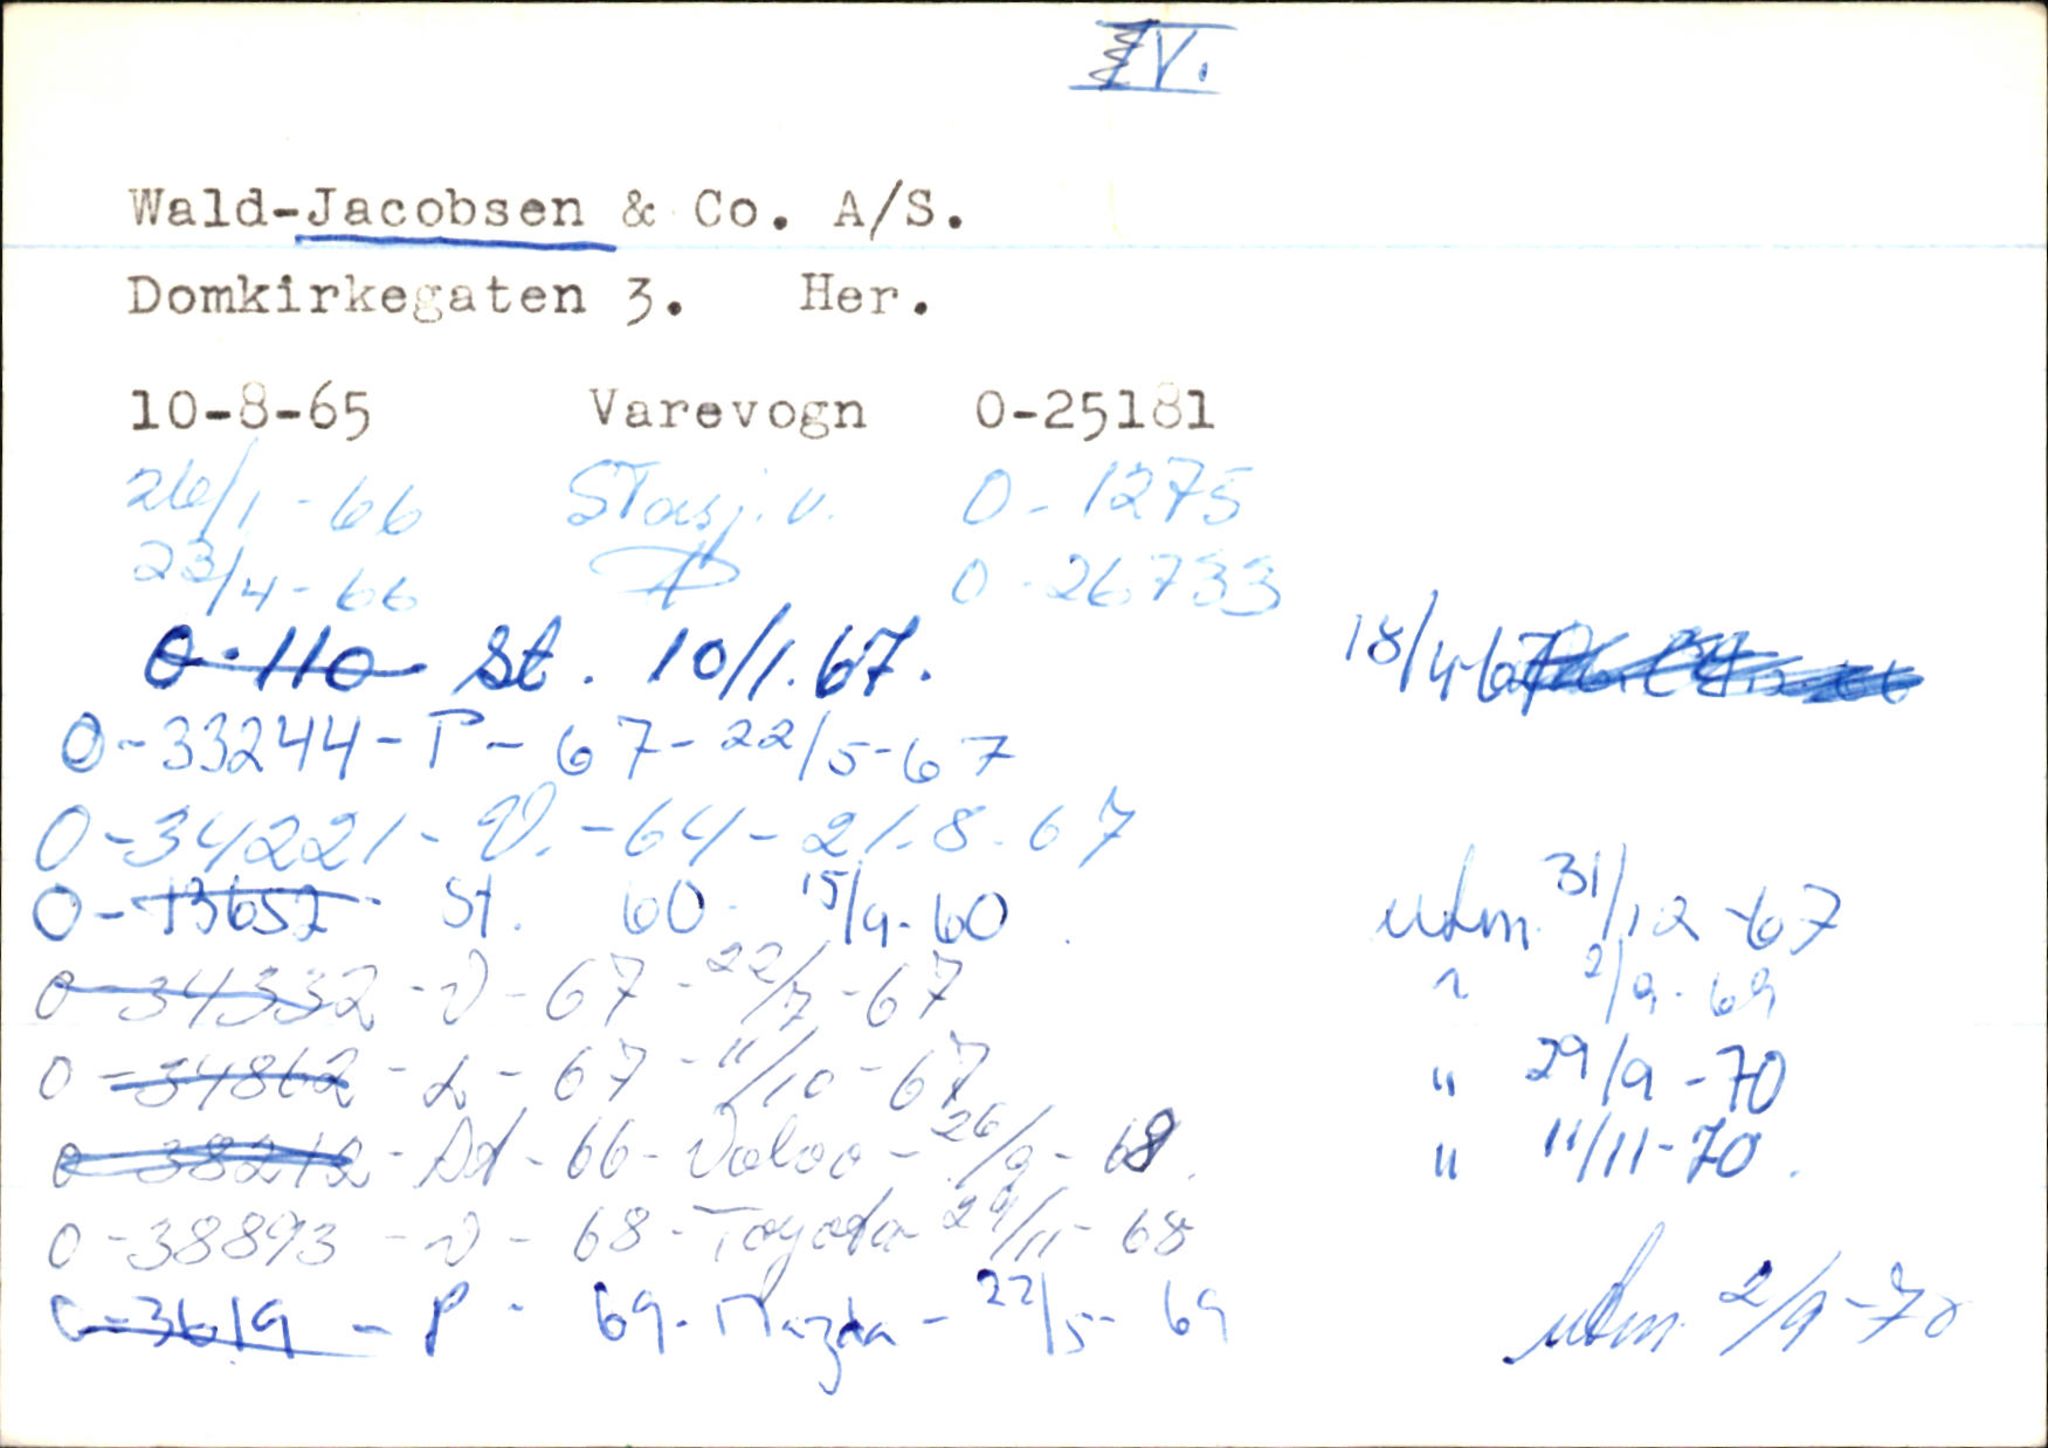 IV.
Wald-Jacobsen & Co. A/S.
Domkirkegaten 3. Her.
10-8-65 Varevogn 0-25181
26/1-66 Stasj.v. O-1275
23/4-66 O-26733
O-110 St. 10/1.67. 18/4-67
O-33244-P-67-22/5-67
O-34221-V.-64-21.8.67
O-13652 St. 60 15/9-60 utm. 31/12-67
O-34332-V-67-22/7-67 " 2/9-69
O-34862-L-67-11/10-67 " 29/9-70
O-38212-St-66-Volvo-26/9-68. " 11/11-70.
O-38893-V-68-Toyota 29/11-68
O-3619-P-69-Mazda-22/5-69 utm. 2/9-70